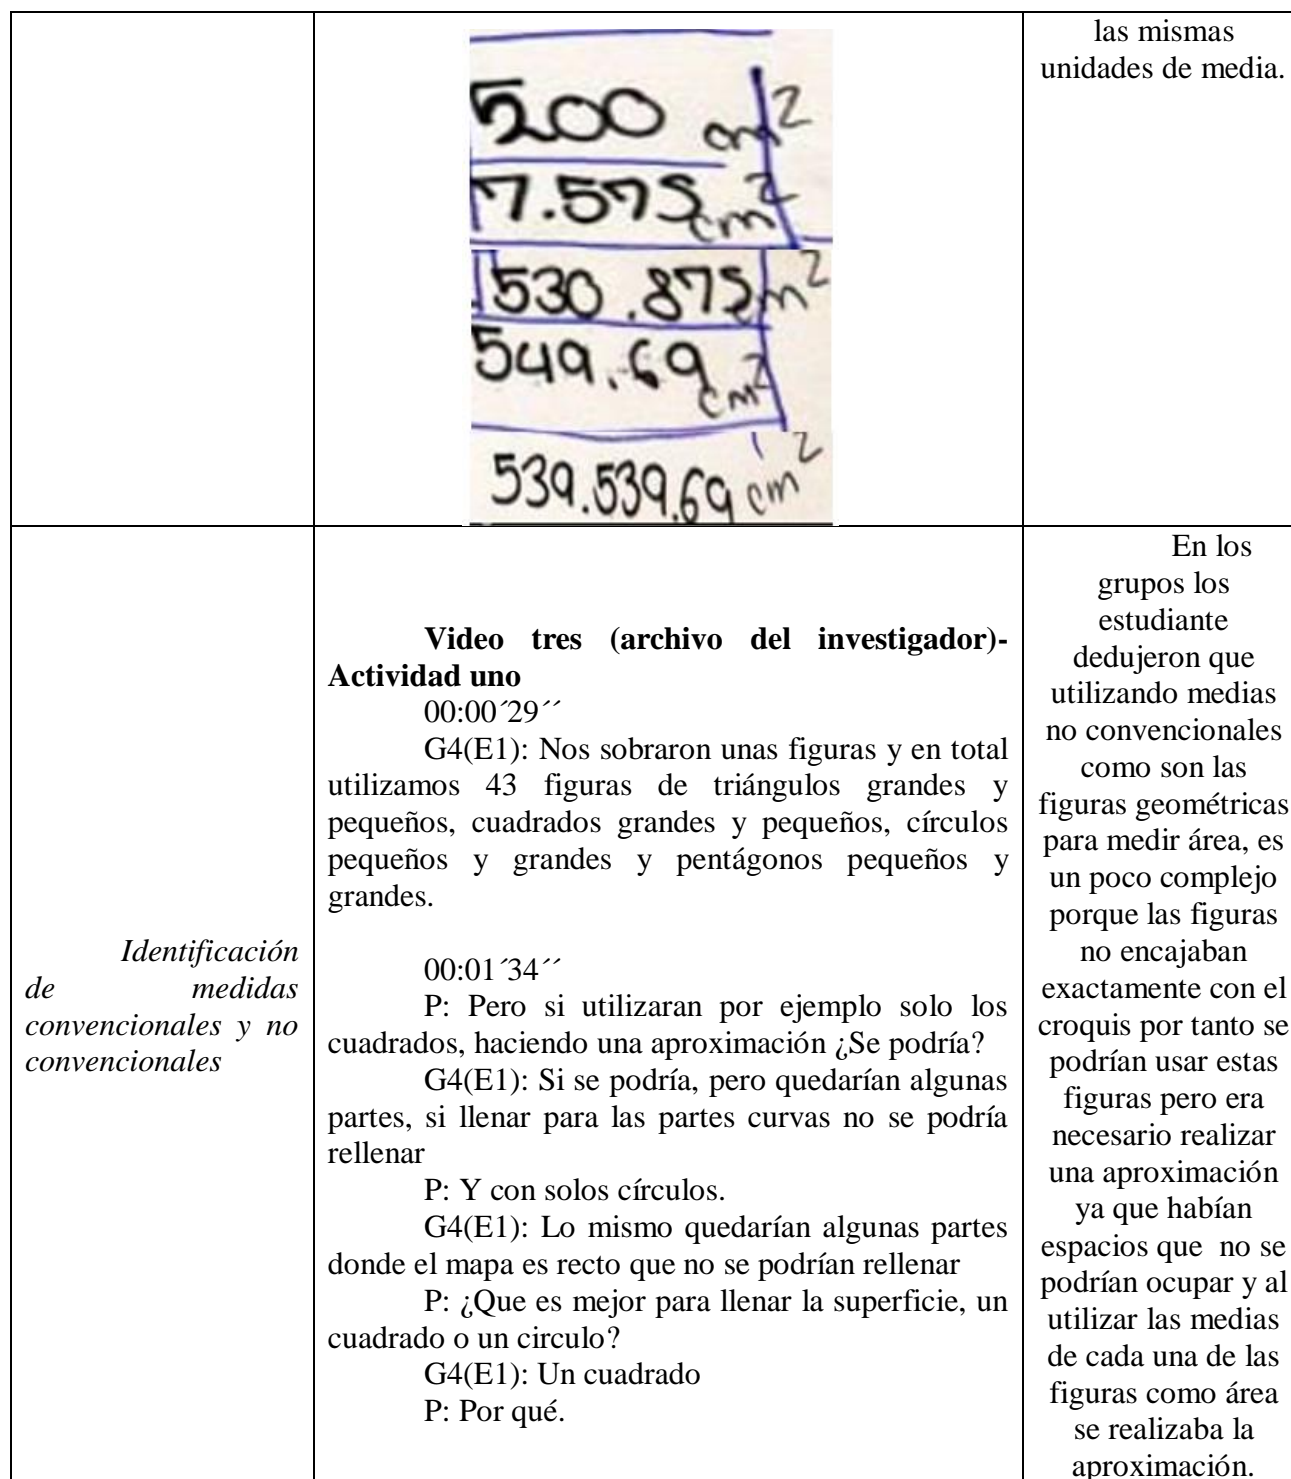 las mismas
unidades de media.
500 cm²
7.575 cm²
530.875 cm²
549.69 cm²
539.539.69 cm²
Identificación
de medidas
convencionales y no
convencionales
Video tres (archivo del investigador)-
Actividad uno
00:00´29´´
G4(E1): Nos sobraron unas figuras y en total
utilizamos 43 figuras de triángulos grandes y
pequeños, cuadrados grandes y pequeños, círculos
pequeños y grandes y pentágonos pequeños y
grandes.
00:01´34´´
P: Pero si utilizaran por ejemplo solo los
cuadrados, haciendo una aproximación ¿Se podría?
G4(E1): Si se podría, pero quedarían algunas
partes, si llenar para las partes curvas no se podría
rellenar
P: Y con solos círculos.
G4(E1): Lo mismo quedarían algunas partes
donde el mapa es recto que no se podrían rellenar
P: ¿Que es mejor para llenar la superficie, un
cuadrado o un circulo?
G4(E1): Un cuadrado
P: Por qué.
En los
grupos los
estudiante
dedujeron que
utilizando medias
no convencionales
como son las
figuras geométricas
para medir área, es
un poco complejo
porque las figuras
no encajaban
exactamente con el
croquis por tanto se
podrían usar estas
figuras pero era
necesario realizar
una aproximación
ya que habían
espacios que no se
podrían ocupar y al
utilizar las medias
de cada una de las
figuras como área
se realizaba la
aproximación.